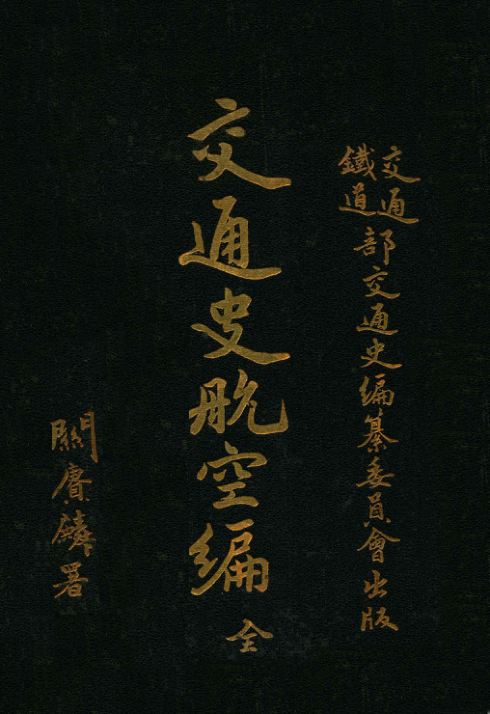 交通
鐵道
部交通史編纂委員會出版
交通史航空編 全
關賡麟署